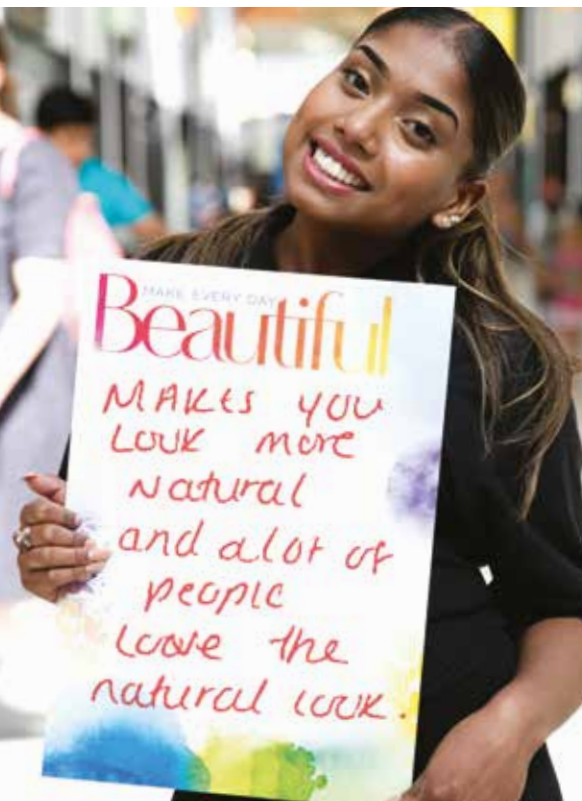 MAKE EVERY DAY
Beautiful
MAKES you
Look more
Natural
and alot of
people
Loove the
natural look.